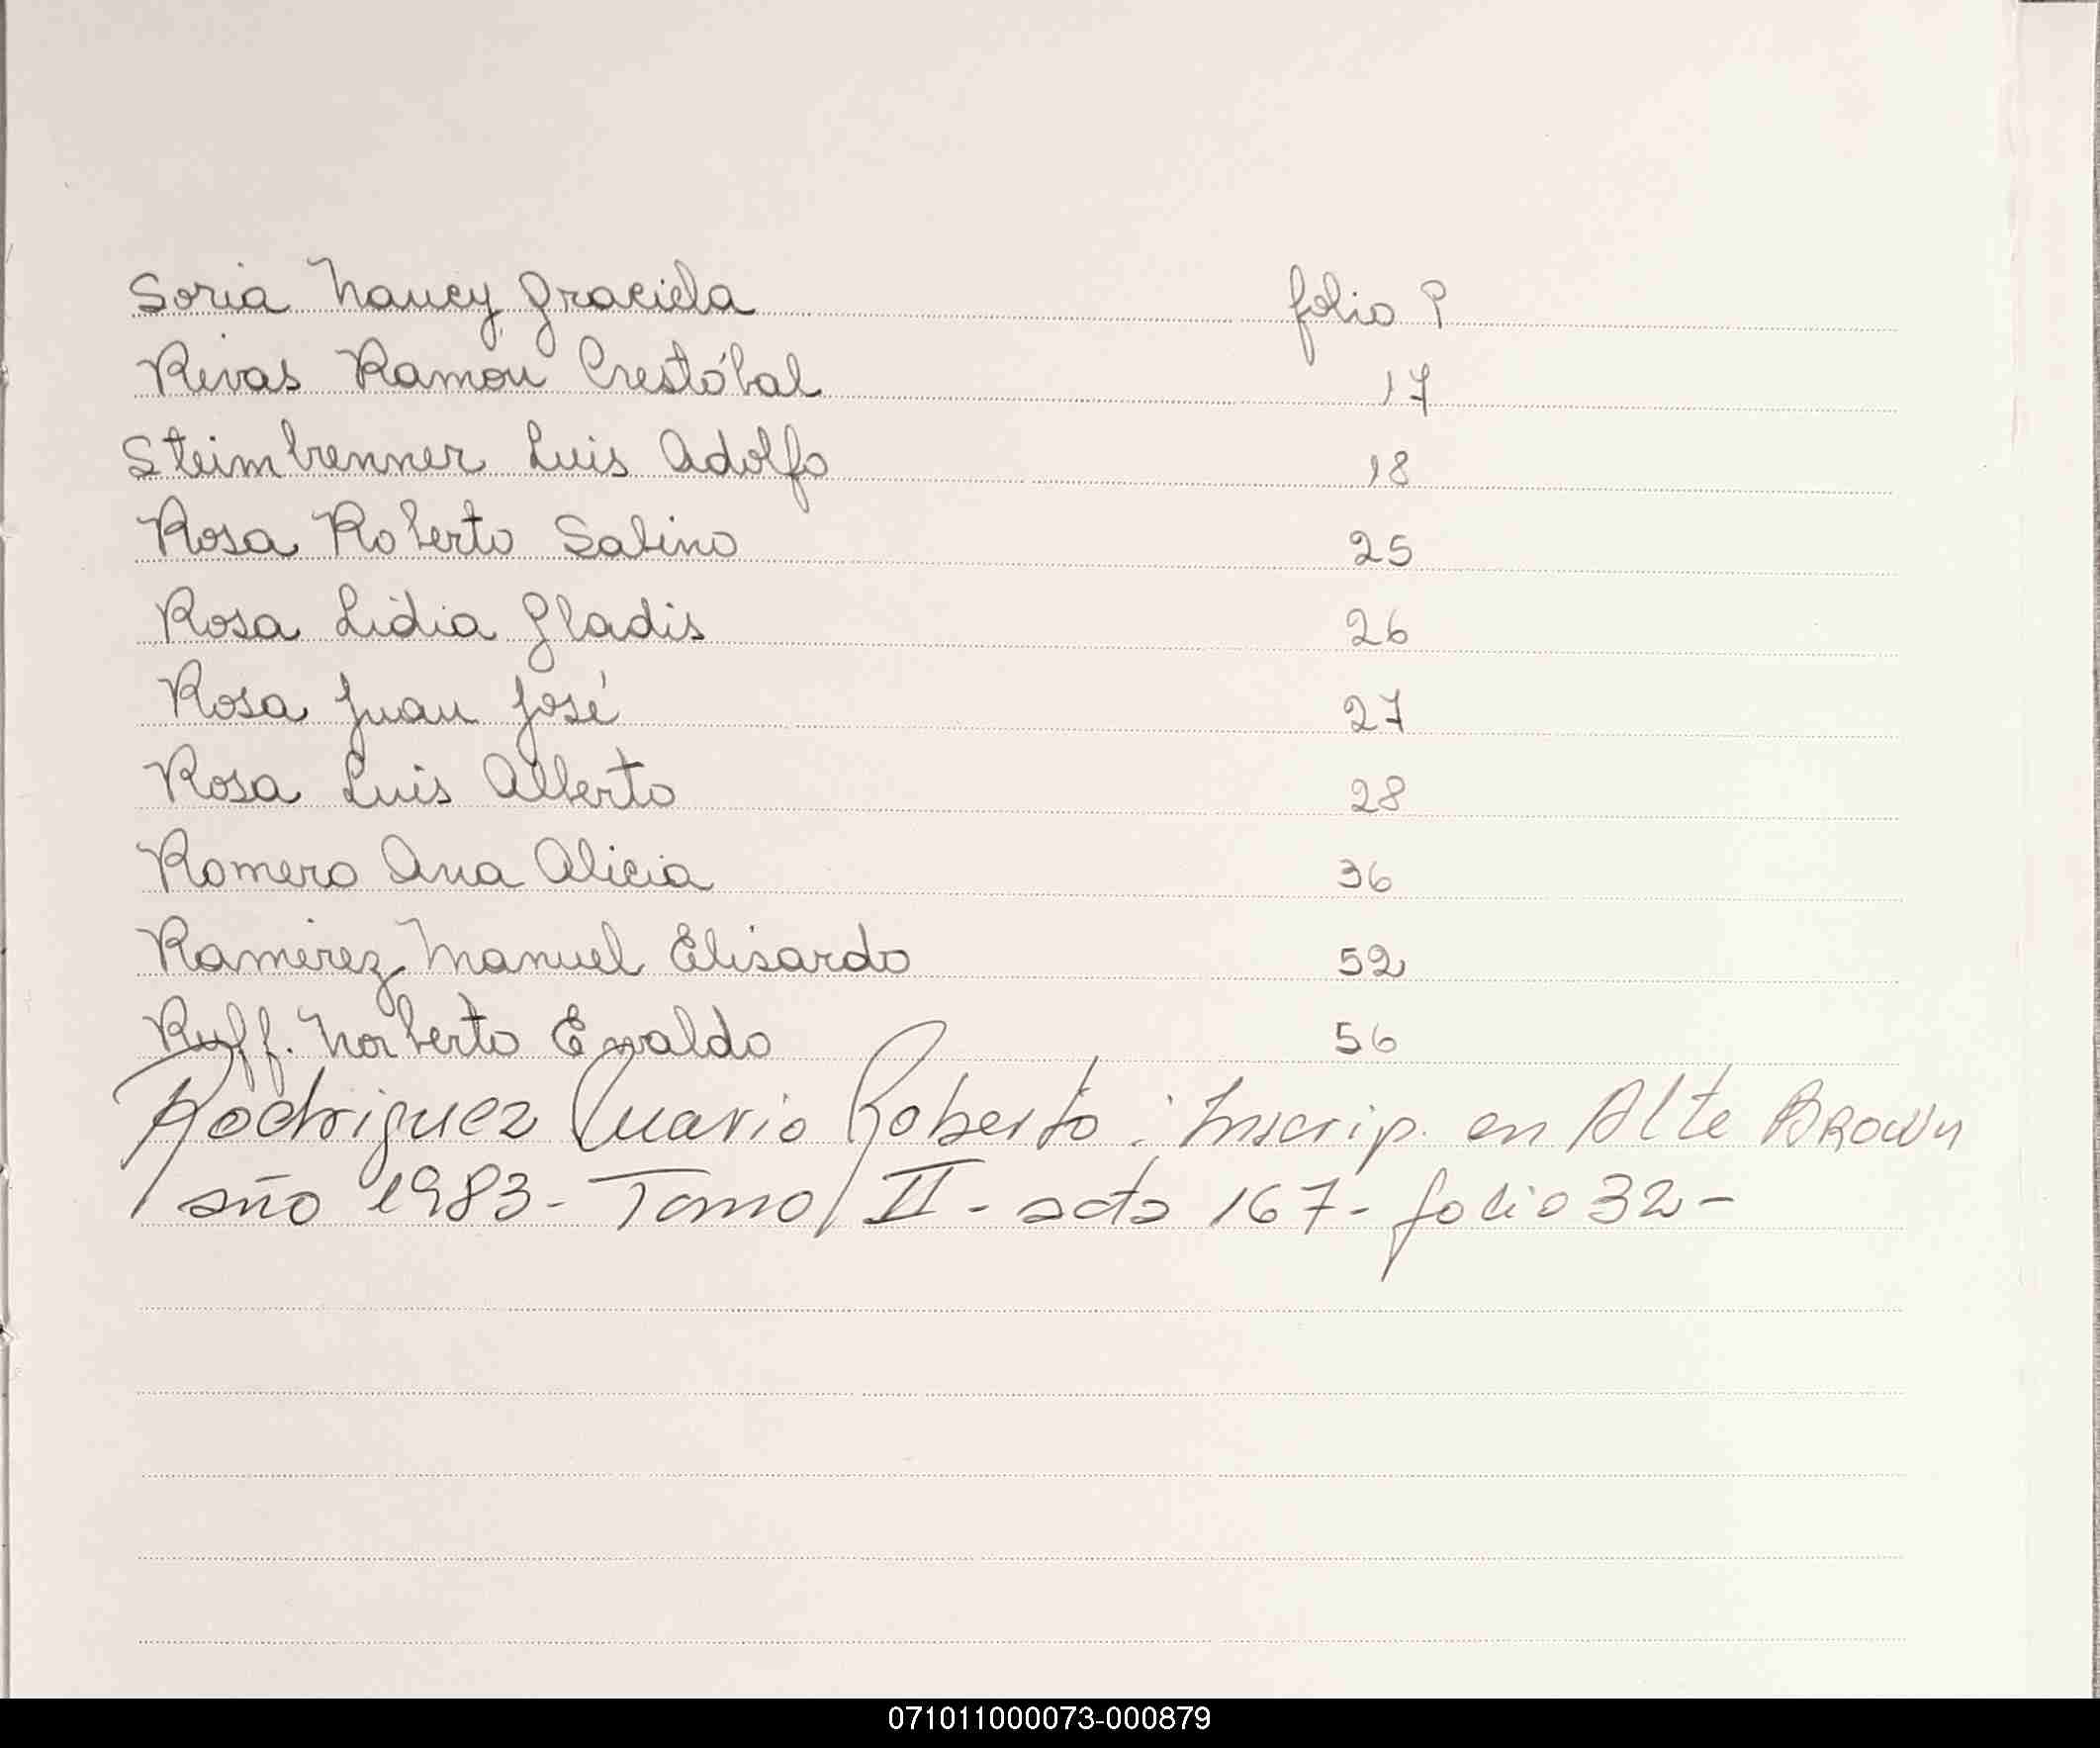 Soria Nancy Graciela folio 9
Rivas Ramon Crestóbal 17
Steimbrenner Luis Adolfo 18
Rosa Roberto Sabino 25
Rosa Lidia Gladis 26
Rosa Juan José 27
Rosa Luis Alberto 28
Romero Ana Alicia 36
Ramirez Manuel Elisardo 52
Ruff. Norberto Evaldo 56
Rodriguez Mario Roberto: Inscrip. en Alte Brown
año 1983- Tomo II - acta 167- folio 32-
071011000073-000879